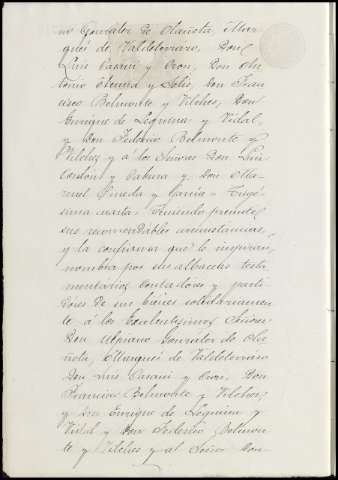 no Gonzalez de Olañeta, Mar-
qués de Valdeterrazo, Don
Luis Casani y Cron, Don An-
tonio y Solis, Don Fran-
cisco Belmonte y Vilches, Don
Enrique de Leguina y Vidal,
y Don Federico Belmonte y
Vilches y a los Señores Don Luis
y Cabrera y Don Ma-
nuel Pineda y Garcia = Trigé-
sima cuarta = Teniendo presente
sus recomendables circunstancias,
y la confianza que le inspiran,
nombra por sus albaceas testa-
mentarios contadores y parti-
dores de sus bienes solidariamen-
te á los Excelentisimos Señores
Don Ulpiano Gonzalez de Ola-
ñeta, Marqués de Valdeterrazo
Don Luis Casani y Cron, Don
Francisco Belmonte y Vilches,
y Don Enrique de Leguina y
Vidal y Don Federico Belmon-
te y Vilches y al Señor Don